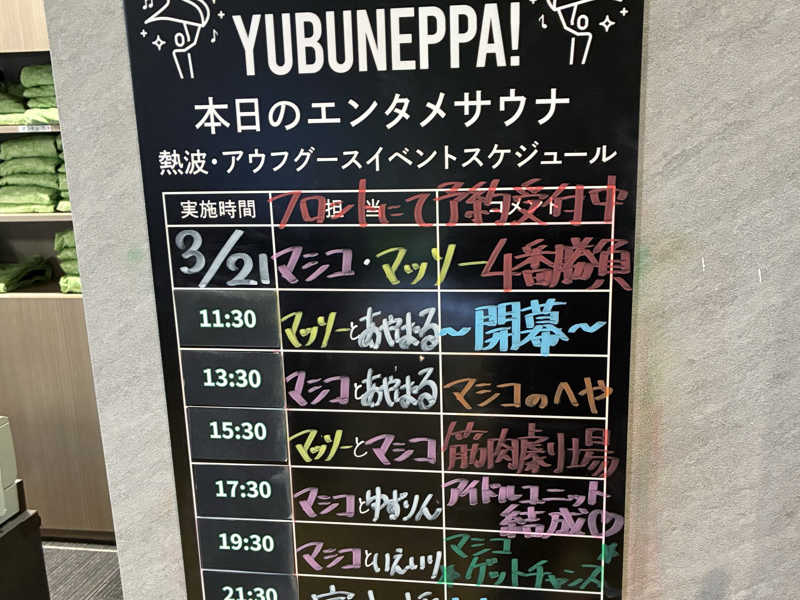 YUBUNEPPA!
本日のエンタメサウナ
熱波・アウフグースイベントスケジュール
実施時間 担 当 コメント
フロントにて予約受付中
3/21 マシコ・マッソー4番勝負
11:30 マッソーとあやはる ～開幕～
13:30 マシコとあやはる マシコのへや
15:30 マッソーとマシコ 筋肉劇場
17:30 マシコとゆずりん アイドルユニット
結成♡
19:30 マシコといえいり マシコ
ゲットチャンス
21:30